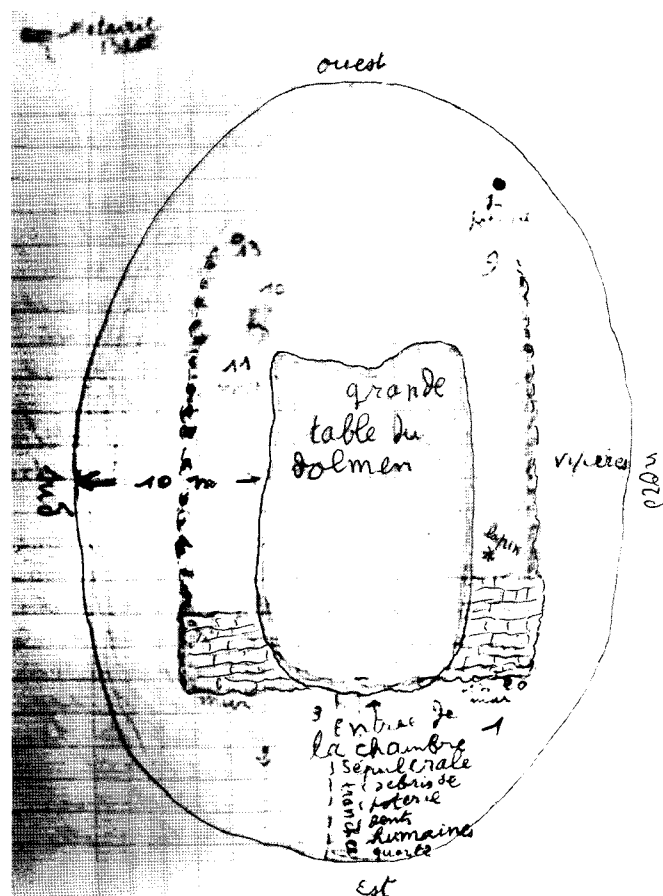 ouest
13
10
9
11
grande
table du
dolmen
10 m
sud
vipères
nord
lapin
mur
mur
1
3
entrée de
la chambre
sépulcrale
tranchée
débris de
poterie
dents
humaines
quartz
Est